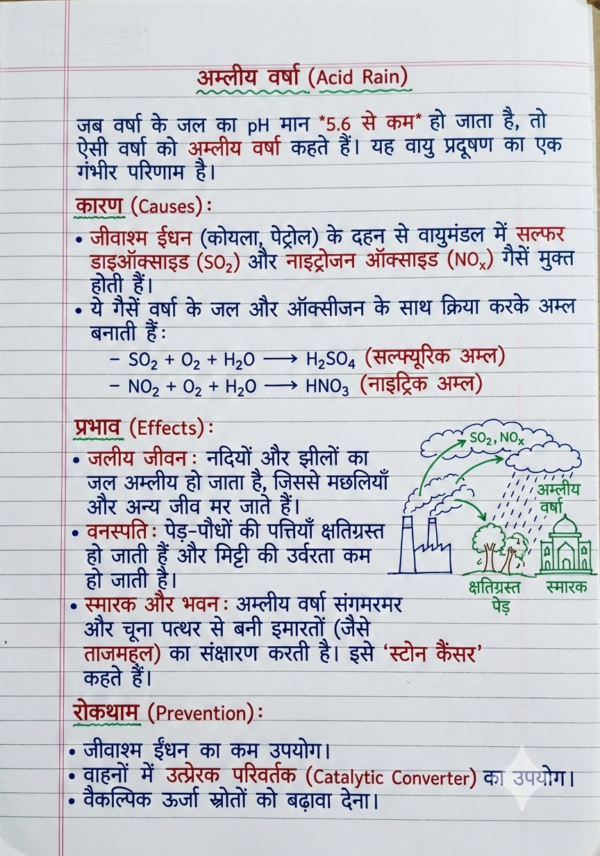 अम्लीय वर्षा (Acid Rain)
जब वर्षा के जल का pH मान *5.6 से कम* हो जाता है, तो
ऐसी वर्षा को अम्लीय वर्षा कहते हैं। यह वायु प्रदूषण का एक
गंभीर परिणाम है।
कारण (Causes):
• जीवाश्म ईंधन (कोयला, पेट्रोल) के दहन से वायुमंडल में सल्फर
डाइऑक्साइड (SO₂) और नाइट्रोजन ऑक्साइड (NOₓ) गैसें मुक्त
होती हैं।
• ये गैसें वर्षा के जल और ऑक्सीजन के साथ क्रिया करके अम्ल
बनाती हैं:
– SO₂ + O₂ + H₂O ⟶ H₂SO₄ (सल्फ्यूरिक अम्ल)
– NO₂ + O₂ + H₂O ⟶ HNO₃ (नाइट्रिक अम्ल)
प्रभाव (Effects):
• जलीय जीवन: नदियों और झीलों का
जल अम्लीय हो जाता है, जिससे मछलियाँ
और अन्य जीव मर जाते हैं।
• वनस्पति: पेड़-पौधों की पत्तियाँ क्षतिग्रस्त
हो जाती हैं और मिट्टी की उर्वरता कम
हो जाती है।
• स्मारक और भवन: अम्लीय वर्षा संगमरमर
और चूना पत्थर से बनी इमारतों (जैसे
ताजमहल) का संक्षारण करती है। इसे ‘स्टोन कैंसर’
कहते हैं।
SO₂, NOₓ
अम्लीय
वर्षा
क्षतिग्रस्त
पेड़
स्मारक
रोकथाम (Prevention):
• जीवाश्म ईंधन का कम उपयोग।
• वाहनों में उत्प्रेरक परिवर्तक (Catalytic Converter) का उपयोग।
• वैकल्पिक ऊर्जा स्रोतों को बढ़ावा देना।